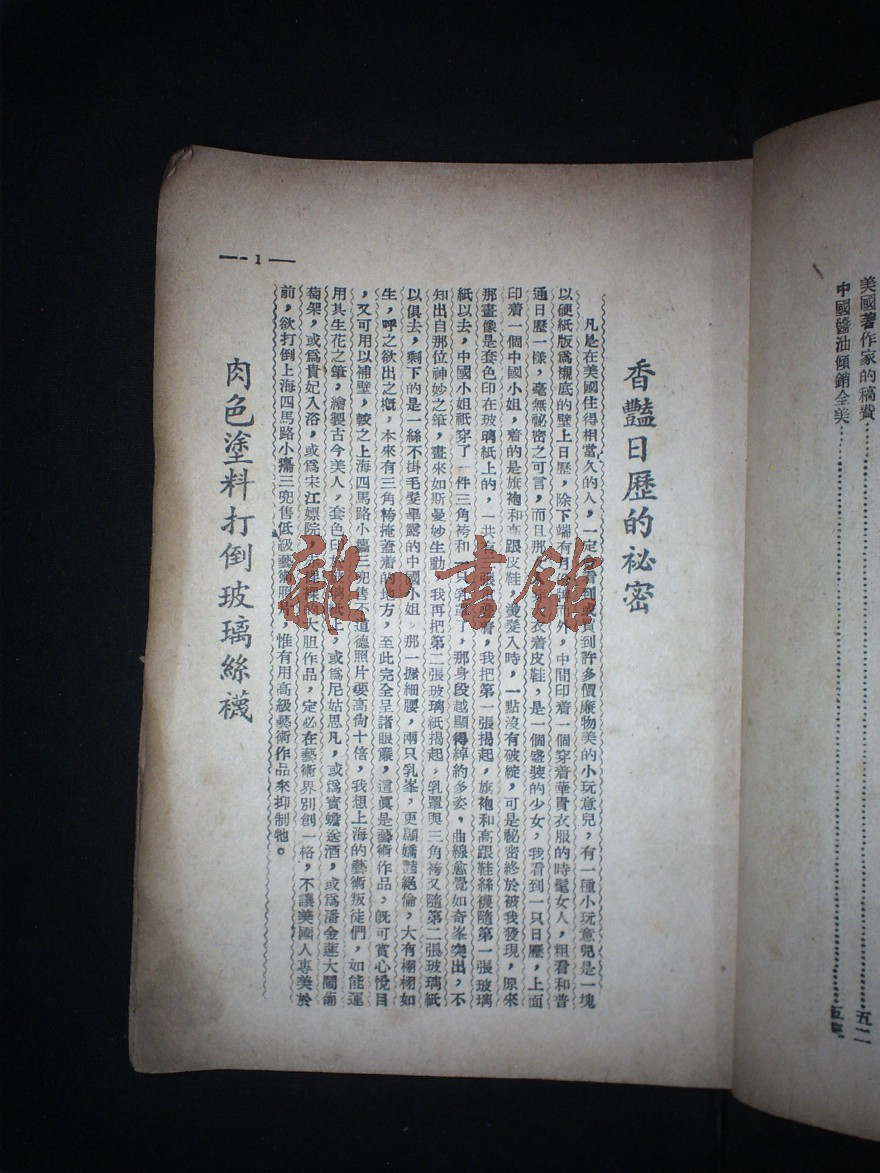 美國著作家的稿費…………五二
中國醬油傾銷全美…………五
香豔日歷的祕密
凡是在美國住得相當久的人，一定看到或買到許多價廉物美的小玩意兒，有一種小玩意兒是一塊
以硬紙版爲襯底的壁上日歷，除下端有月份牌外，中間印着一個穿着華貴衣服的時髦女人，粗看和普
通日歷一樣，毫無祕密之可言，而且那衣着皮鞋，是一個盛裝的少女，我看到一只日歷，上面
印着一個中國小姐，着的是旗袍和高跟皮鞋，燙髮入時，一點沒有破綻，可是祕密終於被我發現，原來
那畫像是套色印在玻璃紙上的，一共有張，看，我把第一張揭起，旗袍和高跟鞋絲襪隨第一張玻璃
紙以去，中國小姐祇穿了一件三角袴和一只乳罩，那身段越顯得綽約多姿，曲線愈覺如奇峯突出，不
知出自那位神妙之筆，畫來如斯曼妙生動，我再把第二張玻璃紙揭起，乳罩與三角袴又隨第二張玻璃紙
以俱去，剩下的是一絲不掛毛髮畢露的中國小姐，那一搦細腰，兩只乳峯，更顯嬌豔絕倫，大有栩栩如
生，呼之欲出之槪，本來有三角袴掩蓋着的地方，至此完全呈諸眼簾，這眞是藝術作品，旣可賞心悅目
，又可用以補壁，較之上海四馬路小癟三兜售不道德照片要高尙十倍，我想上海的藝術叛徒們，如能運
用其生花之筆，繪製古今美人，套色印在玻璃紙上，或爲尼姑思凡，或爲寳蟾送酒，或爲潘金蓮大鬧葡
萄架，或爲貴妃入浴，或爲宋江嫖院，裸的大胆作品，定必在藝術界別創一格，不讓美國人專美於
前，欲打倒上海四馬路小癟三兜售低級藝術照片，惟有用高級藝術作品來抑制牠。
肉色塗料打倒玻璃絲襪
— 1 —
雜·書館